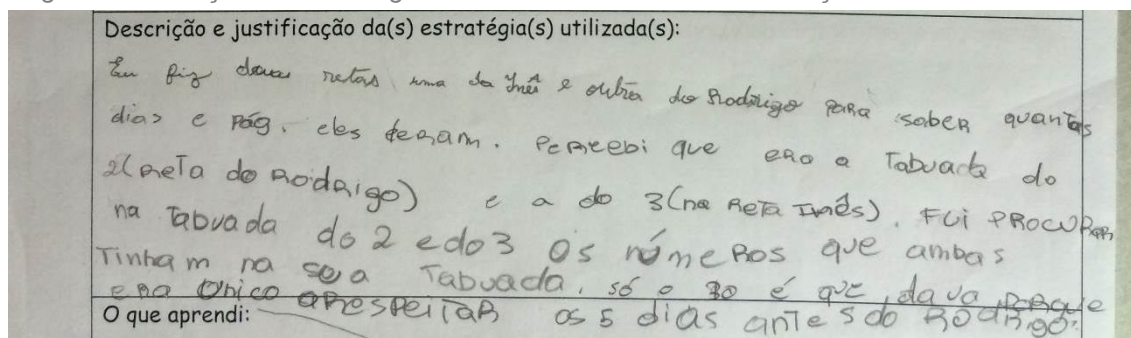 Descrição e justificação da(s) estratégia(s) utilizada(s):
Eu fiz duas retas uma da Inês e outra do Rodrigo para saber quantas
dias e pág. eles leram. Percebi que era a Tabuada do
2(reta do Rodrigo) e a do 3(na Reta Inês). FUI PROCURAR
na Tabuada do 2 e do 3 os números que ambas
Tinham na sua Tabuada, só o 30 é que dava, porque
era único a respeitar os 5 dias antes do Rodrigo.
O que aprendi: